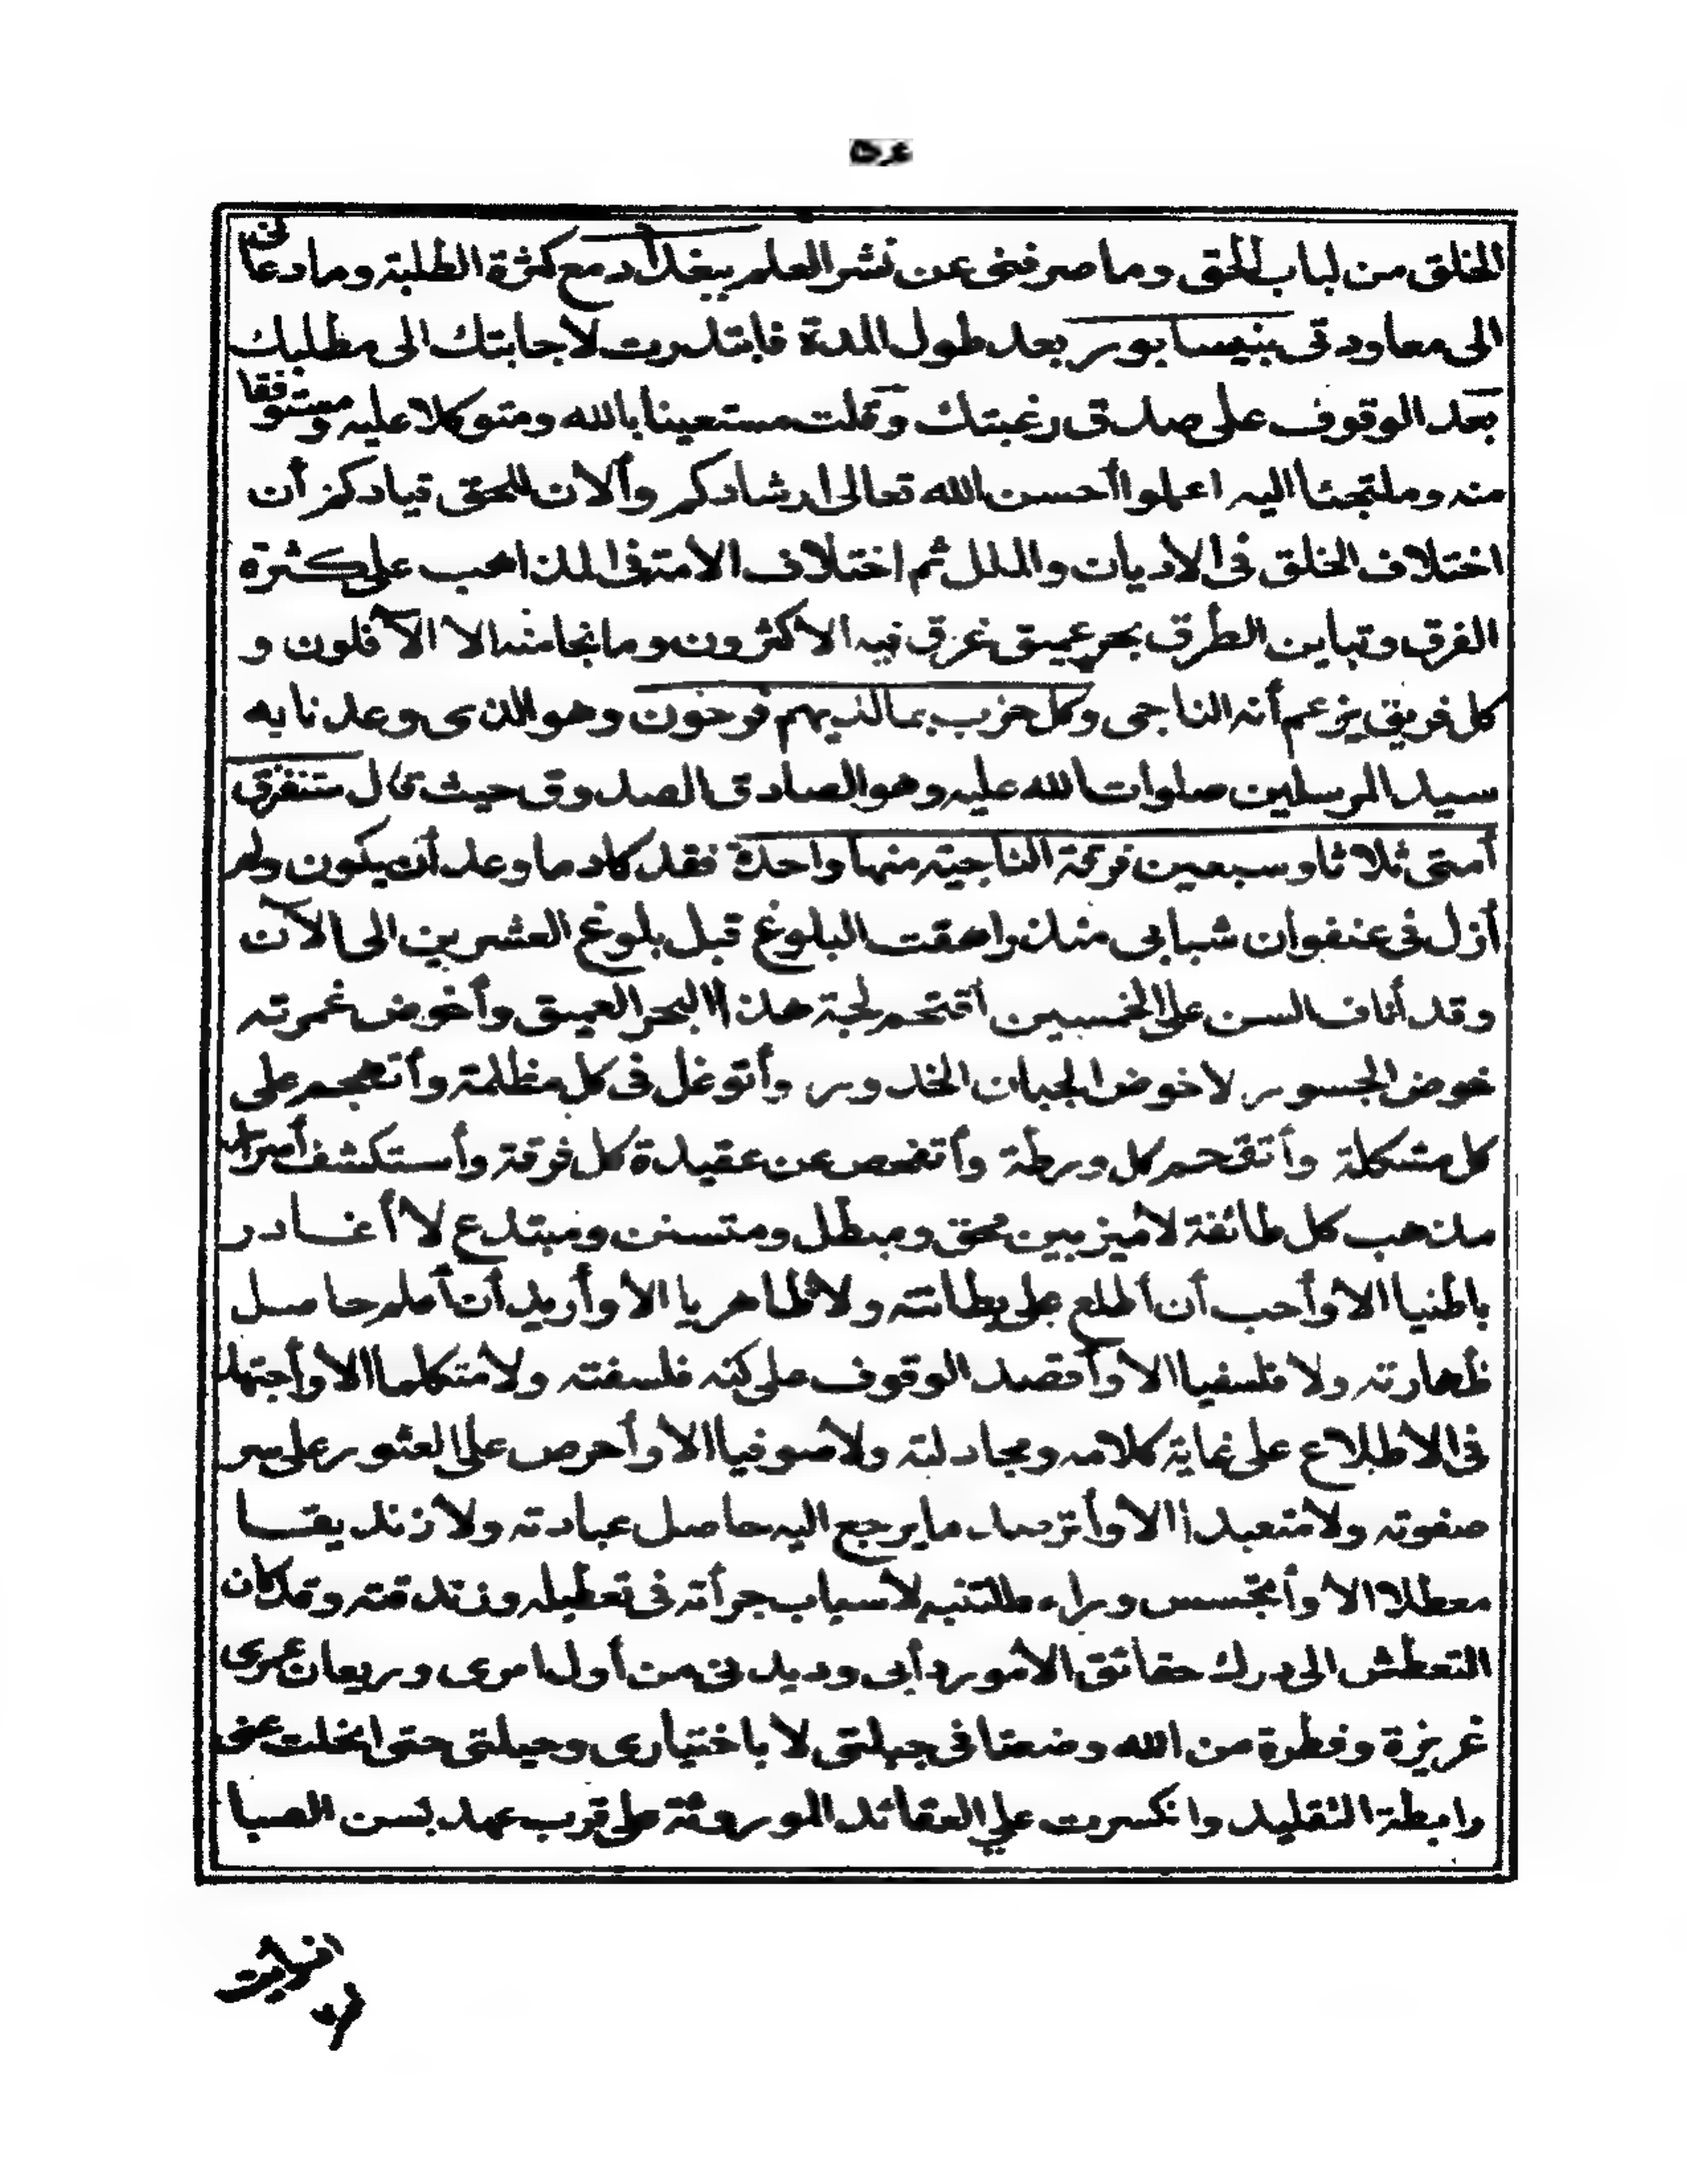 الخلق من لباب الحق وما صرفنى عن نشر العلم ببغداد مع كثرة الطلبة وما دعانى
الى معاودتى بنيسابور بعد طول المدة فابتدرت لاجابتك الى مطلبك
بعد الوقوف على صدق رغبتك وقلت مستعينا بالله ومتوكلا عليه ومستوفقا
منه وملتجئا اليه اعلموا أحسن الله تعالى ارشادكم وألان للحق قيادكم أن
اختلاف الخلق فى الاديان والملل ثم اختلاف الامة فى المذاهب على كثرة
الفرق وتباين الطرق بحر عميق غرق فيه الاكثرون وما نجا منه الا الأقلون و
كل فريق يزعم أنه الناجى وكل حزب بما لديهم فرحون وهو الذى وعدنا به
سيد المرسلين صلوات الله عليه وهو الصادق الصدوق حيث قال ستفترق
أمتى ثلاثا وسبعين فرقة الناجية منها واحدة فقد كاد ما وعد أن يكون ولم
أزل فى عنفوان شبابى منذ راهقت البلوغ قبل بلوغ العشرين الى الآن
وقد أناف السن على الخمسين أقتحم لجة هذا البحر العميق وأخوض غمرته
خوض الجسور لا خوض الجبان الخدور وأتوغل فى كل مظلمة وأتهجم على
كل مشكلة وأتقحم كل ورطة وأتفحص عن عقيدة كل فرقة وأستكشف أسرار
مذهب كل طائفة لأميز بين محق ومبطل ومتسنن ومبتدع لا أغادر
باطنيا الا وأحب أن أطلع على بطانته ولا ظاهريا الا وأريد أن أعلم حاصل
ظهارته ولا فلسفيا الا وأقصد الوقوف على كنه فلسفته ولا متكلما الا وأجتهد
فى الاطلاع على غاية كلامه ومجادلته ولا صوفيا الا وأحرص على العثور على سر
صفوته ولا متعبدا الا وأترصد ما يرجع اليه حاصل عبادته ولا زنديقا
معطلا الا وأتجسس وراءه للتنبه لأسباب جرأته فى تعطيله وزندقته وقد كان
التعطش الى درك حقائق الأمور دأبى وديدنى من أول امرى وريعان عمرى
غريزة وفطرة من الله وضعتا فى جبلتى لا باختيارى وحيلتى حتى انحلت عنى
رابطة التقليد وانكسرت على العقائد الموروثة على قرب عهد بسن الصبا